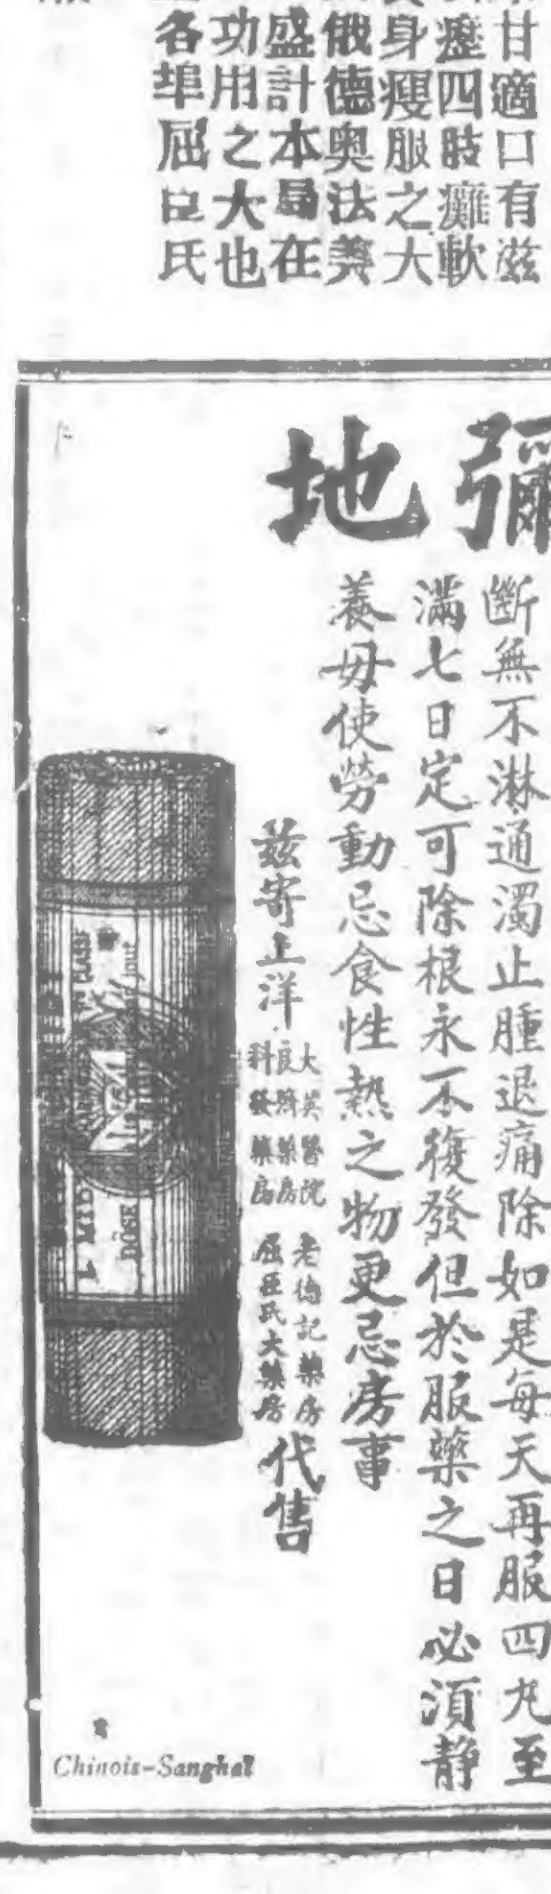 甘適口有滋
瀝四肢癱軟
身瘦服之大
俄德奥法義
盛計本局在
功用之大也
各埠屈臣氏
彌地
斷無不淋通濁止腫退痛除如是每天再服四丸至
滿七日定可除根永不復發但於服藥之日必須静
養毋使勞動忌食性熱之物更忌房事
茲寄上洋
大英醫院
良濟藥房
科發藥房
老德記藥房
屈臣氏大藥房
代售
MIDY
DOSE
Chinois-Sanghaï